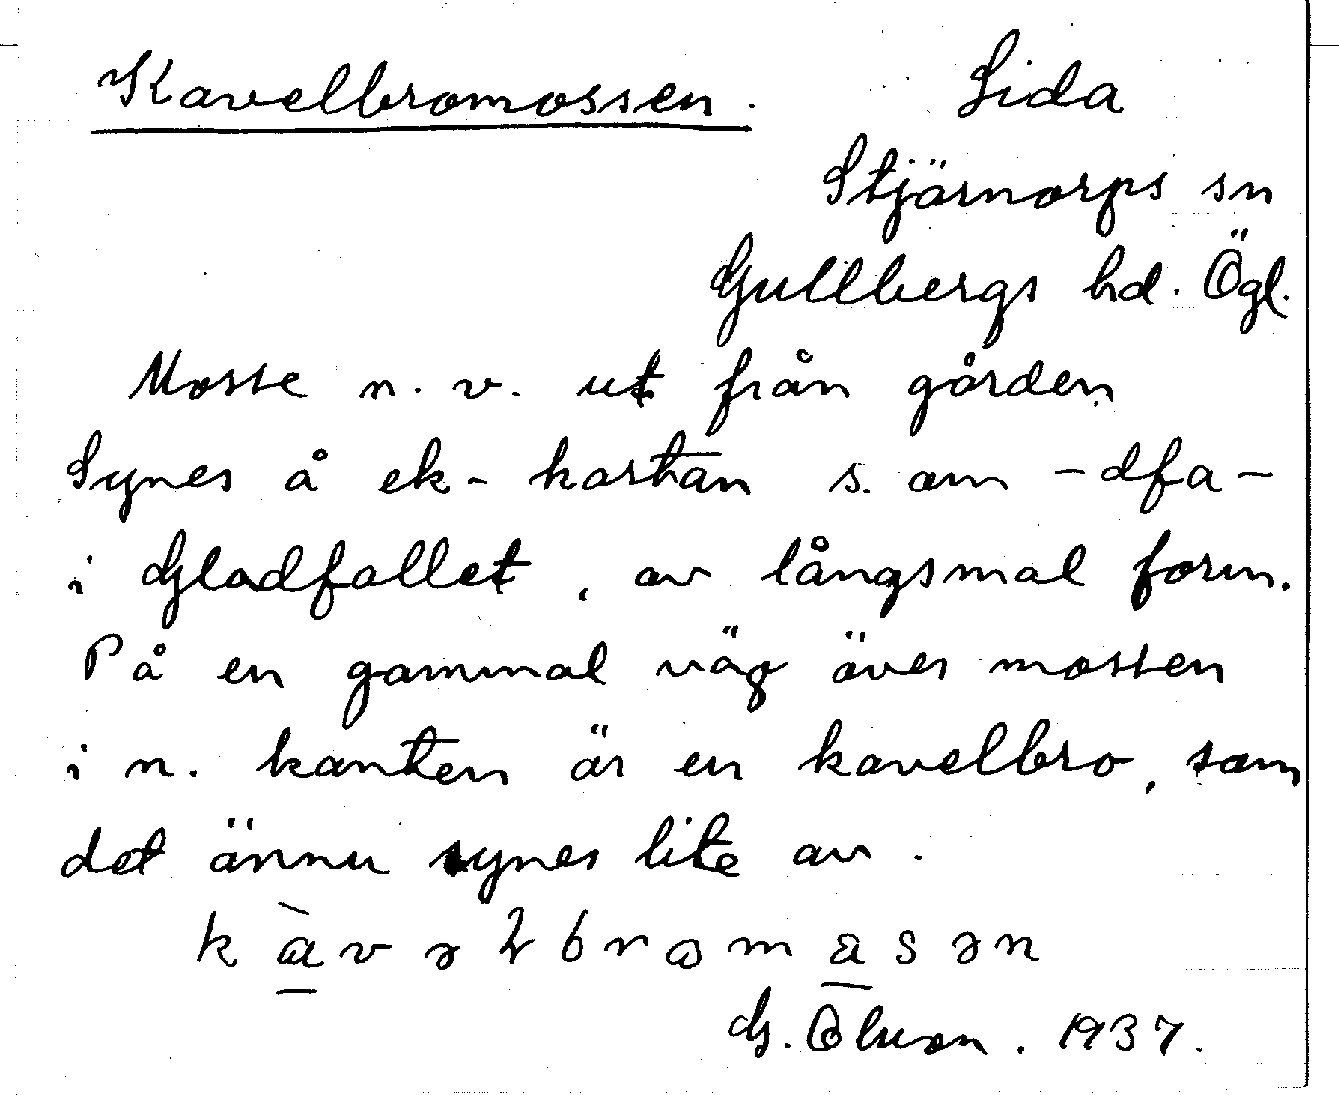 Kavelbromossen. Lida
Stjärnorps sn
Gullbergs hd. Ögl.
Mosse n. v. ut från gården
Synes å ek-kartan s. om -dfa-
i Gladfallet, av långsmal form.
På en gammal väg över mossen
i n. kanten är en kavelbro, som
det ännu synes lite av.
G. Olson. 1937.